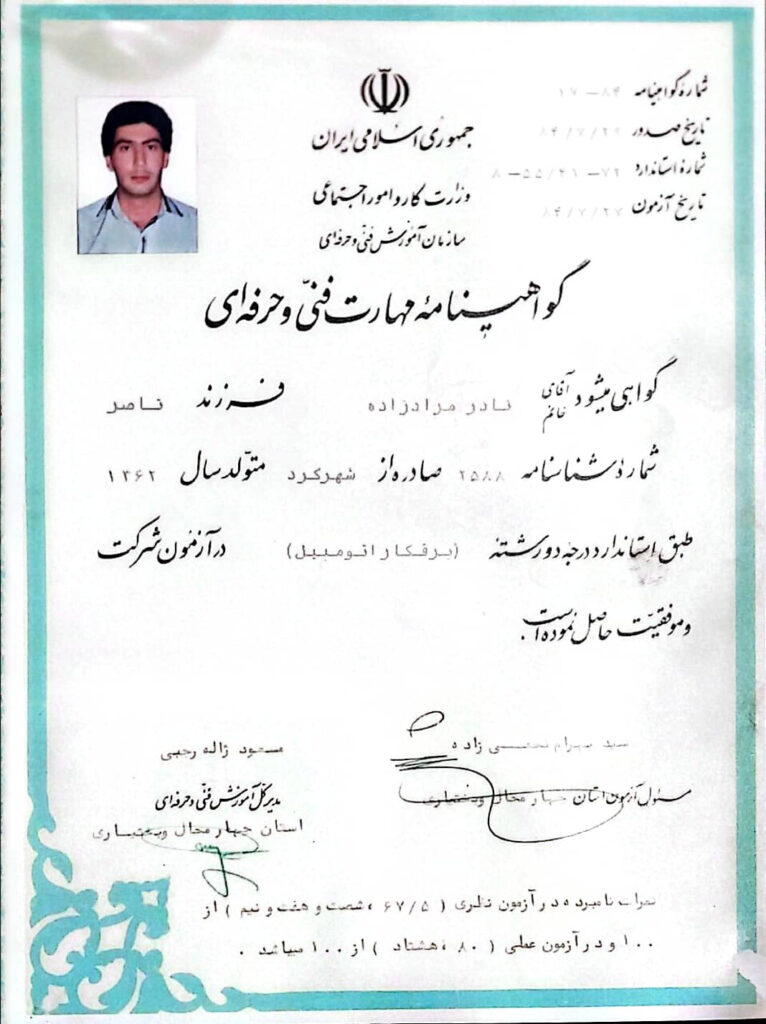 شمارهٔ گواهینامه ۸۴–۱۷
جمهوری اسلامی ایران
تاریخ صدور ۸۴/۷/۲۹
شمارهٔ استاندارد ۷۲–۸–۵۵/۴۱
وزارت کار و امور اجتماعی
تاریخ آزمون ۸۴/۷/۲۷
سازمان آموزش فنی و حرفه‌ای
گواهینامه مهارت فنّی و حرفه‌ای
گواهی میشود آقای خانم نادر مرادزاده فرزند ناصر
شمارهٔ شناسنامه ۲۵۸۸ صادره از شهرکرد متولّد سال ۱۳۶۲
طبق استاندارد درجه دو رشته (برقکار اتومبیل) در آزمون شرکت
و موفقیّت حاصل نموده است.
سید بهرام محسنی زاده
مسعود ژاله رجبی
مسئول آزمون استان چهارمحال وبختیاری
مدیر کل آموزش فنّی و حرفه‌ای
استان چهارمحال وبختیاری
نمرات نامبرده در آزمون نظری ( ۶۷/۵ ، شصت و هفت و نیم ) از
۱۰۰ و در آزمون عملی ( ۸۰ ، هشتاد ) از ۱۰۰ میباشد .